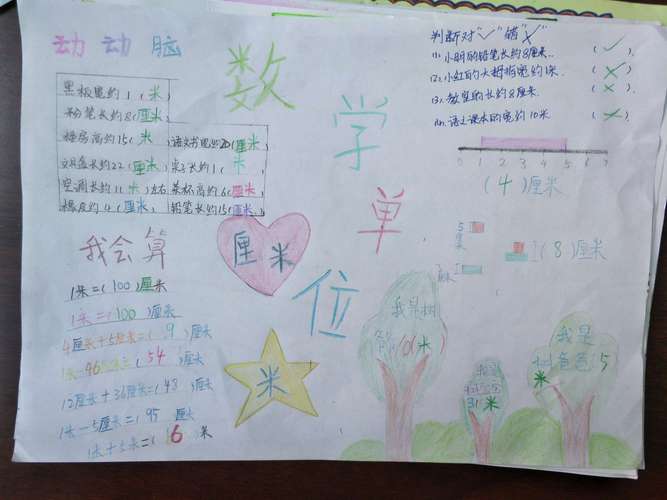 动动脑
黑板宽约1(米)
粉笔长约8(厘米)
楼房高约15(米) 语文书宽约20(厘米)
文具盒长约22(厘米) 桌子长约1(米)
空调长约11(米)左右 茶杯高约6(厘米)
橡皮约4(厘米) 铅笔长约15(厘米)
我会算
1米=(100)厘米
1米=(100)厘米
4厘米+5厘米=(9)厘米
1米-46厘米=(54)厘米
12厘米+36厘米=(48)厘米
1米-5厘米=(95)厘米
1米+5米=(6)米
数学单位
厘米
米
判断对"✓"错"✗"
(1).小明的铅笔长约8厘米. (✓)
(2).小红的大拇指宽约1米. (✗)
(3).教室的长约8厘米. (✗)
(4).语文课本的宽约10米 (✗)
0 1 2 3 4 5 6 7
(4)厘米
5厘米
(8)厘米
我是树
米
我是
树爸爸5
米
3米